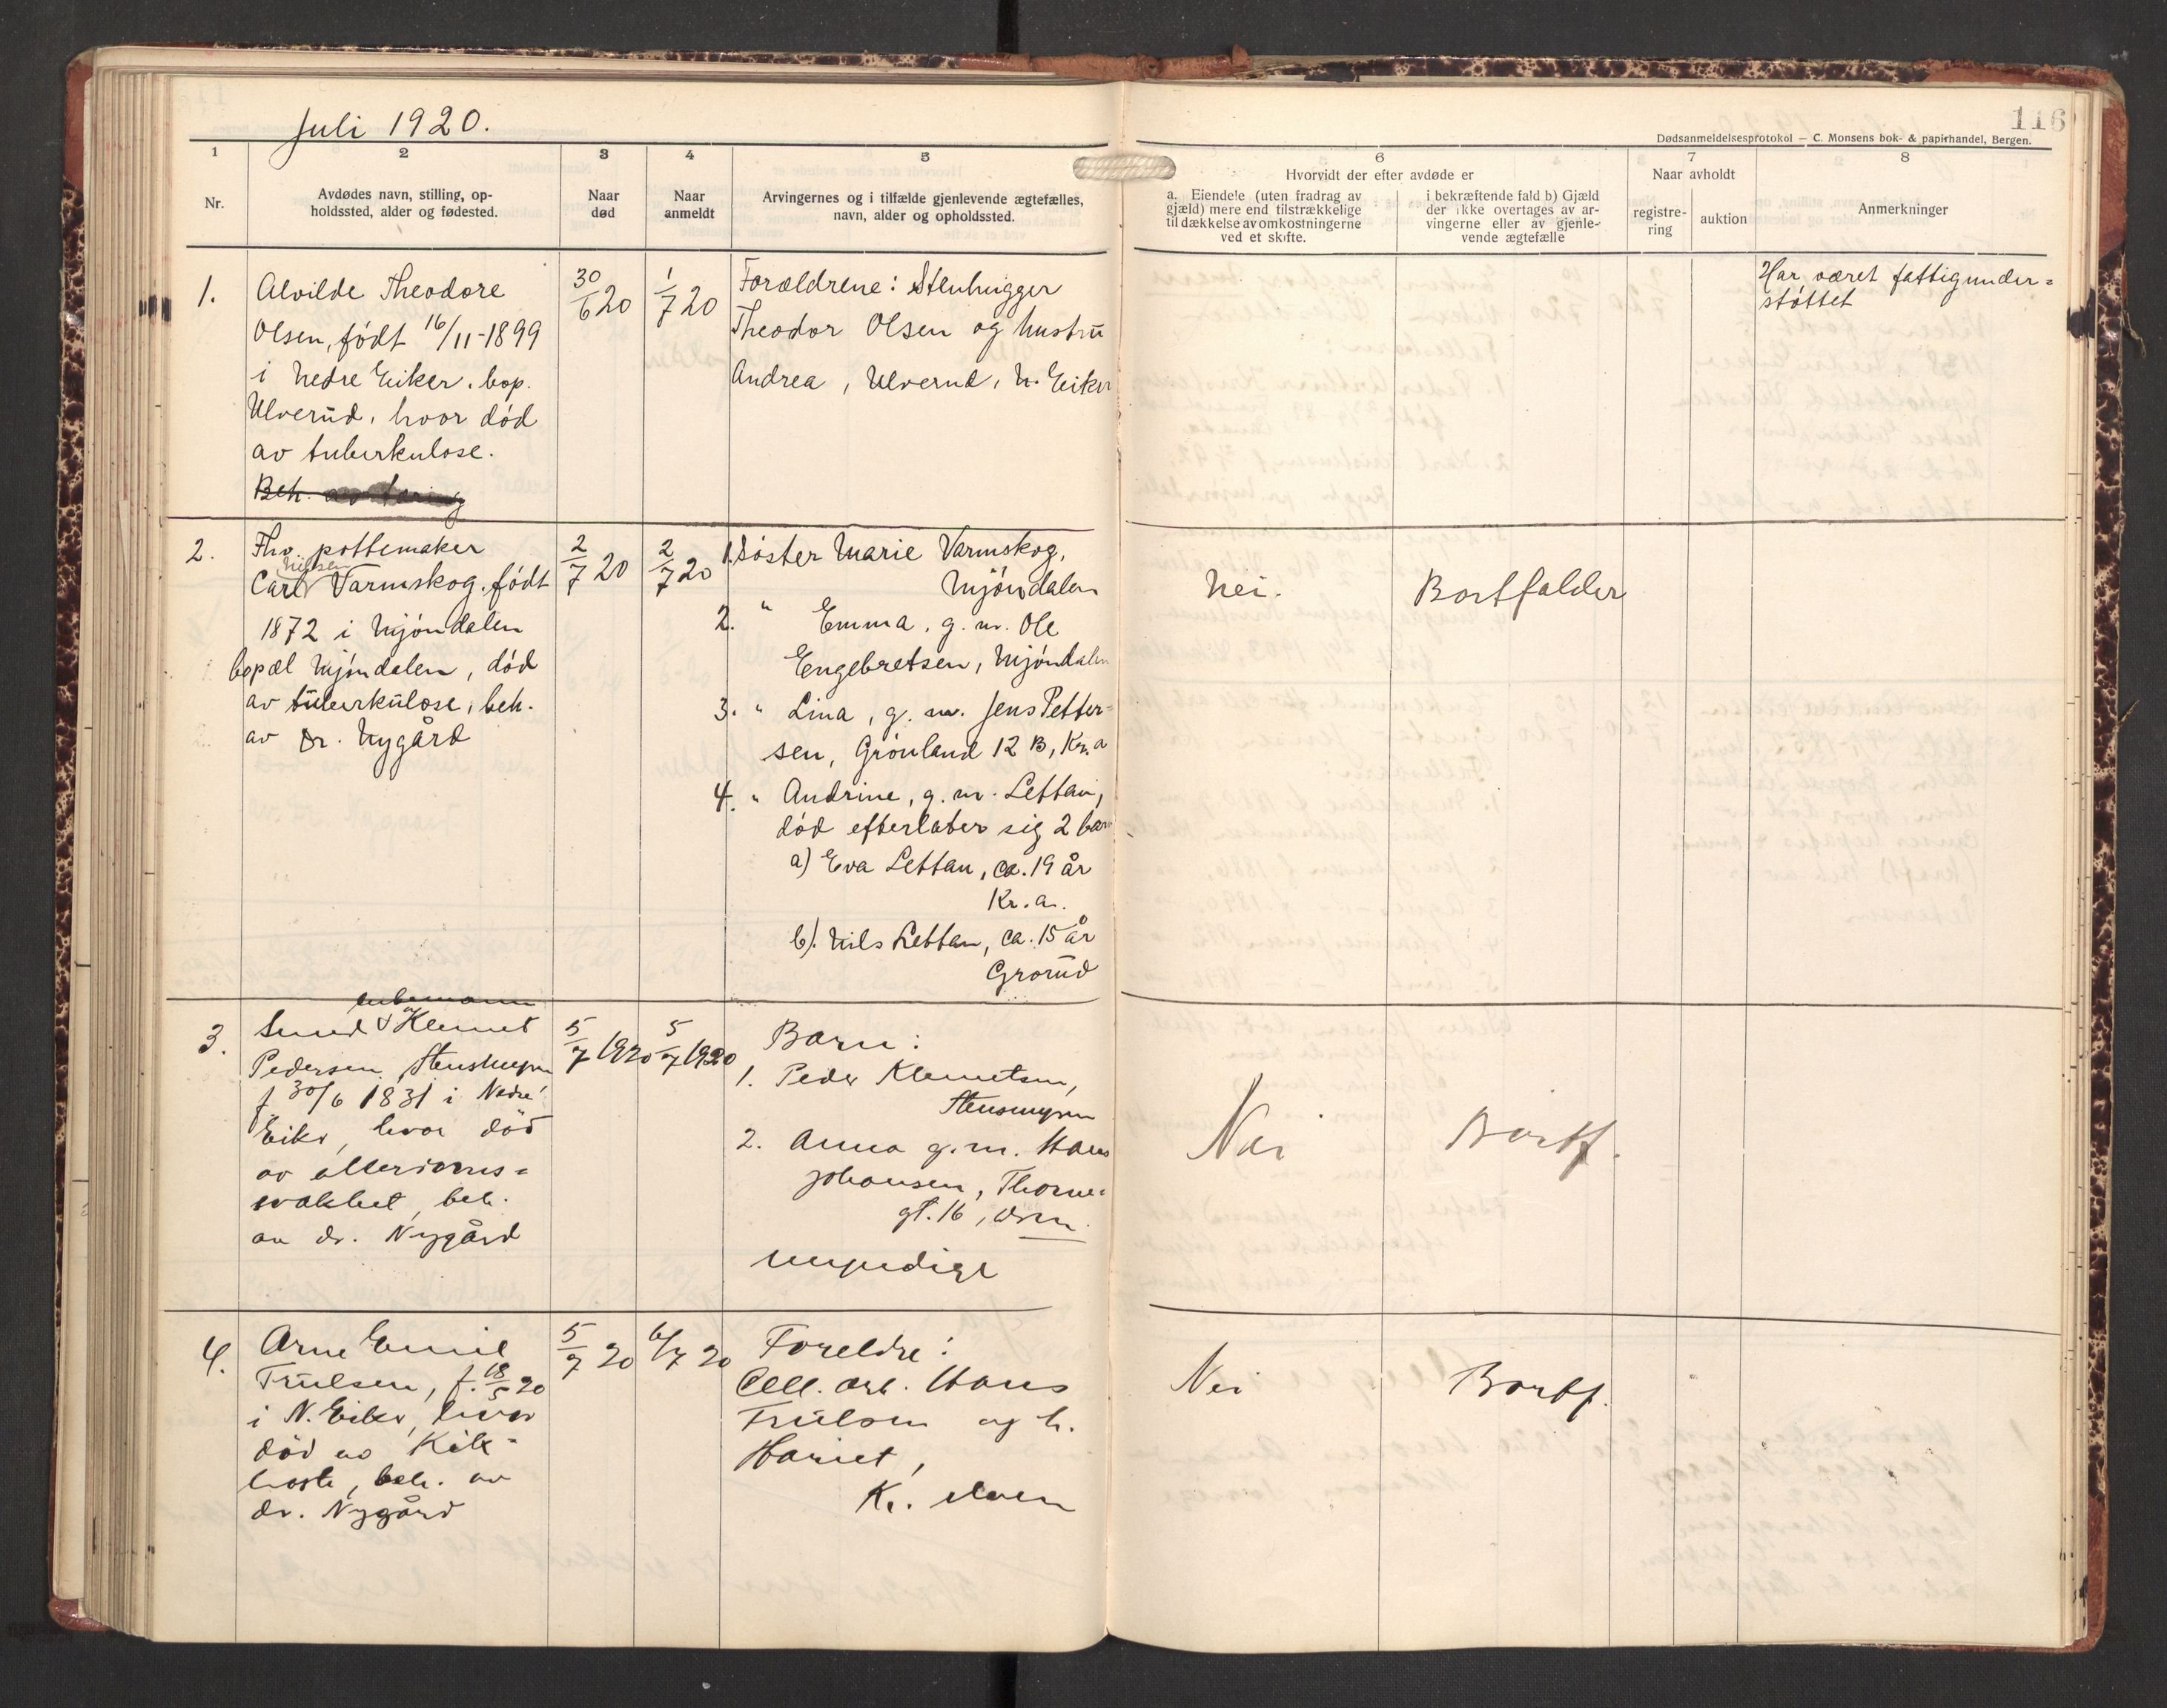 Juli 1920.
116
Dødsanmeldelsesprotokol — C. Monsens bok- & papirhandel, Bergen.
1
2
3
4
5
6
7
8
Nr.
Avdødes navn, stilling, op-
holdssted, alder og fødested.
Naar
død
Naar
anmeldt
Arvingernes og i tilfælde gjenlevende ægtefælles,
navn, alder og opholdssted.
Hvorvidt der efter avdøde er
a. Eiendele (uten fradrag av
gjæld) mere end tilstrækkelige
til dækkelse av omkostningerne
ved et skifte.
i bekræftende fald b) Gjæld
der ikke overtages av ar-
vingerne eller av gjenle-
vende ægtefælle
Naar avholdt
registre-
ring
auktion
Anmerkninger
1.
Alvilde Theodore
Olsen, født 16/11-1899
i Nedre Eiker. bop.
Ulverud, hvor død
av tuberkulose.
Beh. av
30/6 20
1/7 20
Forældrene: Stenhugger
Theodor Olsen og hustru
Andrea, Ulverud, N. Eiker
Har været fattigunder=
støttet
2.
Fhv. pottemaker
Nilsen
Carl Varmskog. født
1872 i Mjöndalen
bopæl Mjöndalen, död
av tuberkulose, beh.
av Dr. Nygård
2/7 20
2/7 20
1. Söster Marie Varmskog,
Mjöndalen
2. " Emma, g. m. Ole
Engebretsen, Mjöndalen
3. " Lina, g. m. Jens Petter=
sen, Grönland 12 B, Kr.a
4. " Andrine, g. m. Lettau,
död efterlater sig 2 barn
a) Eva Lettau, ca. 19 år
Kr. a.
b). Nils Lettau, ca. 15 år
Grorud
Nei.
Bortfalder
3.
Klemet
Pedersen,
f 30/6 1831 i Nedre
Eiker, hvor död
av alderdoms=
svakhet, beh.
av dr. Nygård
5/7 1920
5/7 1920
Barn:
1. Peder Klemetsen,
2. Anna g. m. Hans
Johansen, Thorne=
gt. 16, Drm.
Umyndige
Nei
Bortf.
4.
Arne Emil
Trulsen, f. 18/5 20
i N. Eiker, hvor
död av Kik=
hoste, beh. av
dr. Nygård
5/7 20
6/7 20
Foreldre:
Cell. arb. Hans
Trulsen og h.
Harriet,
Kr. Moen
Nei
Bortf.